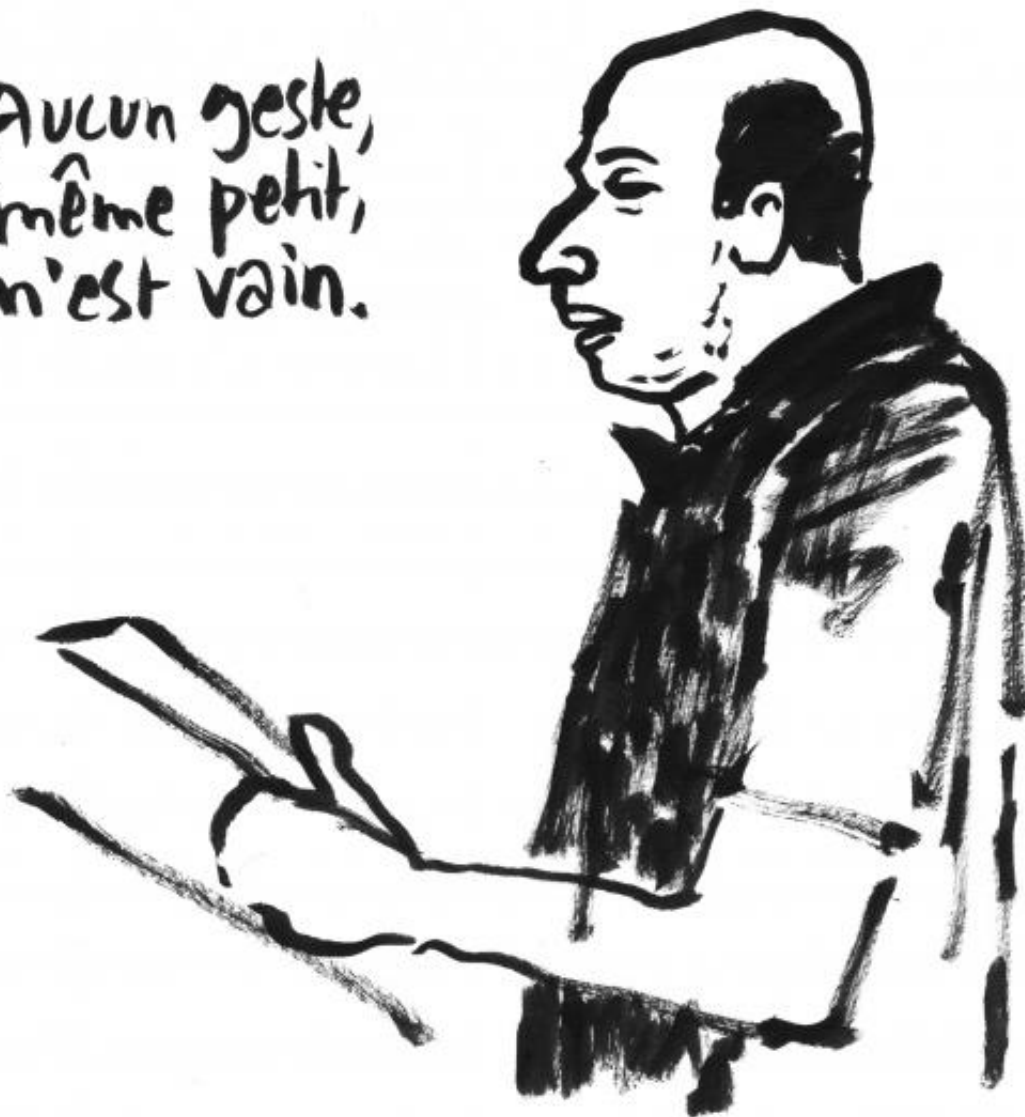 Aucun geste,
même petit,
n'est vain.